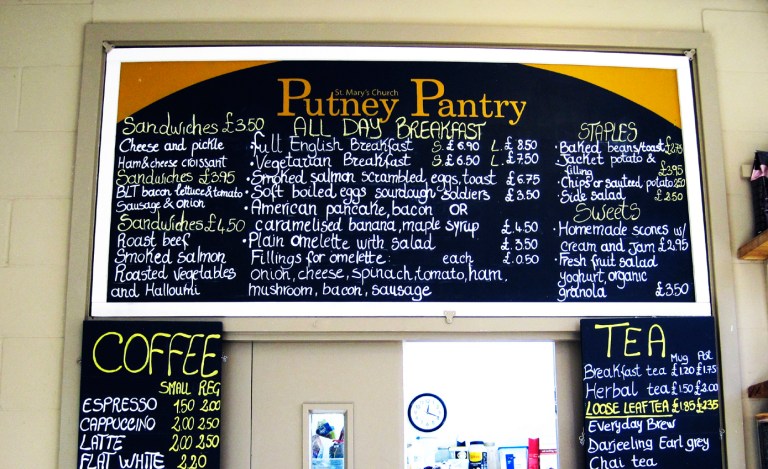 St. Mary's Church
Putney Pantry
Sandwiches £3.50
Cheese and pickle
Ham & cheese croissant
Sandwiches £3.95
BLT bacon lettuce & tomato
Sausage & onion
Sandwiches £4,50
Roast beef
Smoked Salmon
Roasted vegetables
and Halloumi
ALL DAY BREAKFAST
• Full English Breakfast S: £ 6.90 L: £ 8.50
• Vegetarian Breakfast S £ 6.50 L. £ 7.50
• Smoked salmon scrambled, eggs, toast £ 6.75
• Soft boiled eggs sourdough soldiers £ 3.50
• American pancake, bacon OR
caramelised banana, maple syrup £ 4.50
• Plain omelette with salad £ 3.50
Fillings for omelette: each £ 0.50
onion, cheese, spinach, tomato, ham,
mushroom, bacon, sausage
STAPLES
• Baked beans/toast £2.75
• Jacket potato &
filling £3.95
• Chips or sauteed potato 2.50
• Side salad £2.50
SWEETS
• Homemade scones w/
cream and jam £2.95
• Fresh fruit salad
yoghurt, organic
granola £3.50
COFFEE
SMALL REG
ESPRESSO 1.50 2.00
CAPPUCCINO 2.00 2.50
LATTE 2.00 2.50
FLAT WHITE 2.20
TEA
Mug Pot
Breakfast tea £1.20 £1.75
Herbal tea £1.50 £2.00
LOOSE LEAF TEA £1.85 £2.35
Everyday Brew
Darjeeling Earl grey
Chai tea